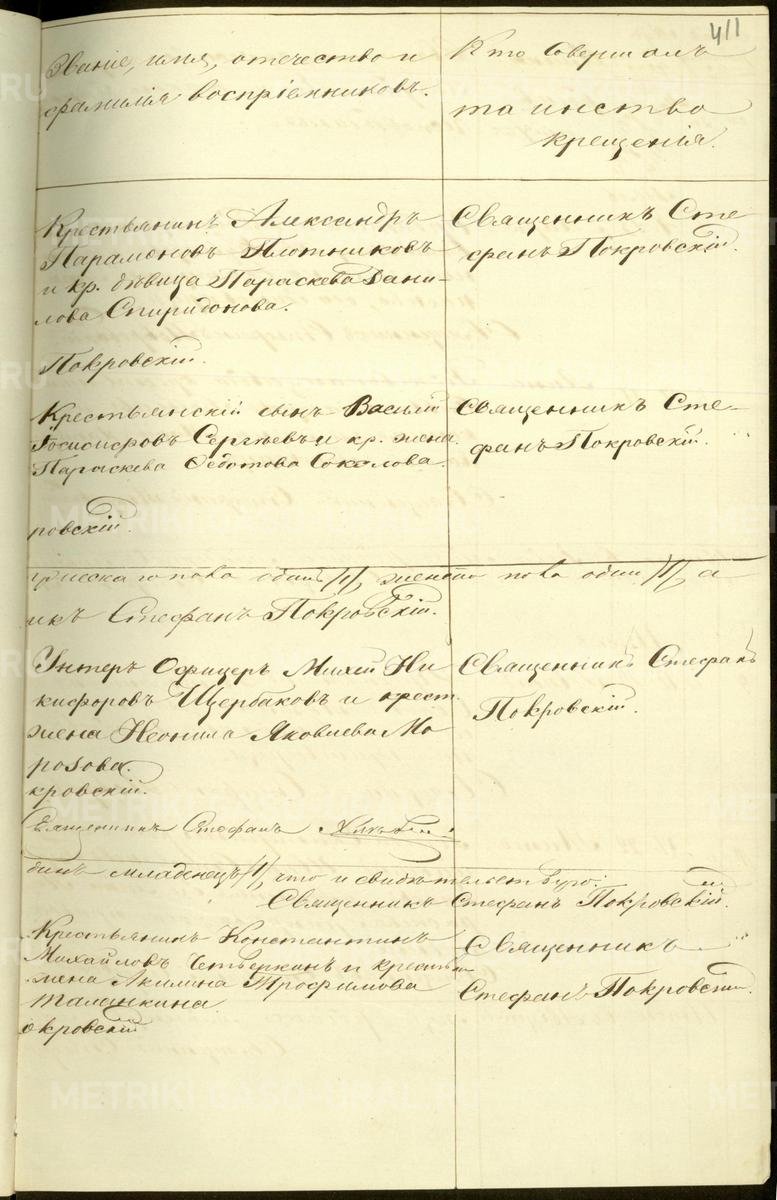 411
Званіе, имя, отечество и
фамилія воспріемниковъ.
Кто совершалъ
таинство
крещенія.
Крестьянинъ Александръ
Парамоновъ Плотниковъ
и кр. дѣвица Параскева Дани-
лова Спиридонова.
Священникъ Сте
фанъ Покровскій.
Покровскій.
Крестьянскій сынъ Василій
Сергѣевъ и кр. жена
Параскева Ѳедотова Соколова.
Священникъ Сте-
фанъ Покровскій.
ровскій.
пола одинъ /1/, женска пола одинъ /1/, а
икъ Стефанъ Покровскій.
Унтеръ Офицеръ Михей Ни
кифоровъ Щербаковъ и крест.
жена Неонила Яковлева Мо
розова.
Священникъ Стефанъ
Покровскій.
кровскій.
Священникъ Стефанъ
динъ младенецъ /1/, что и свидѣтельствую:
Священникъ Стефанъ Покровскій.
Крестьянинъ Константинъ
Михайловъ Четверкинъ и крестьян
жена Акилина Трофимова
Талашкина
Священникъ
Стефанъ Покровскій.
окровскій
METRIKI.GASO-URAL.RU